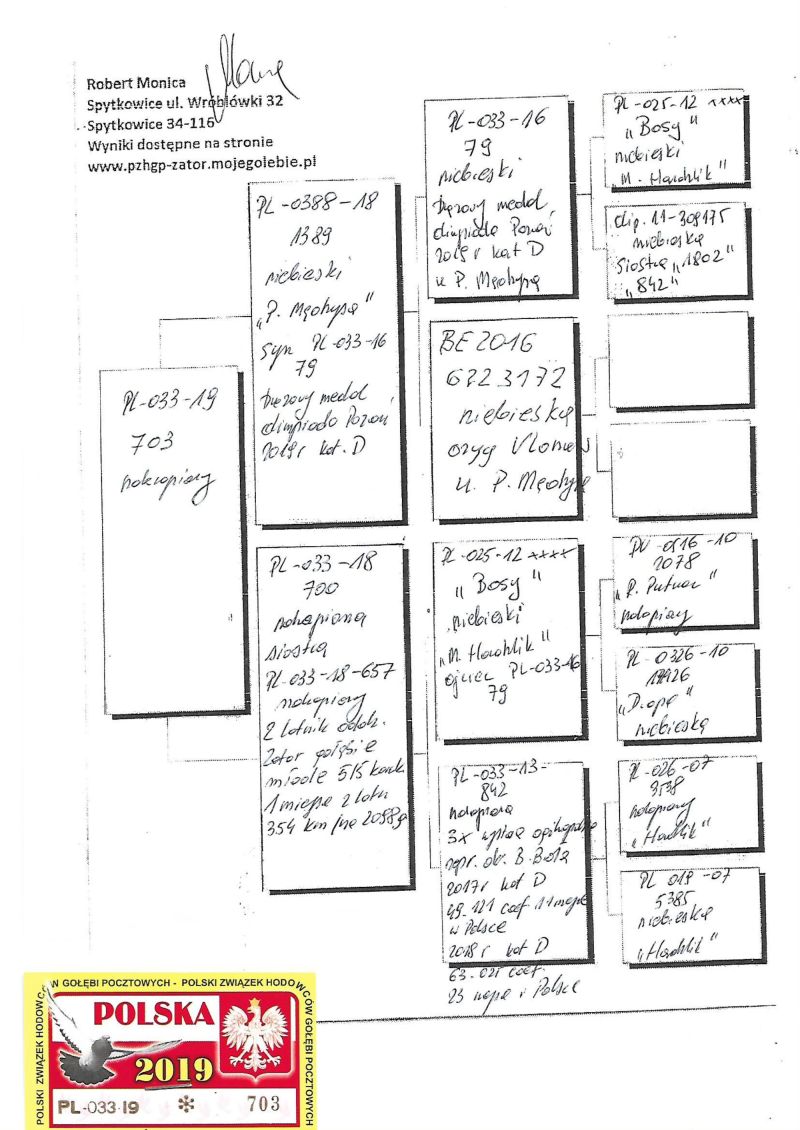 Robert Monica
Spytkowice ul. Wróblówki 32
Spytkowice 34-116
Wyniki dostępne na stronie
www.pzhgp-zator.mojegolebie.pl
PL-033-19
703
nakrapiany
PL-0388-18
1389
niebieski
„P. Mędrysa"
syn PL-033-16
79
brązowy medal
olimpiada Poznań
2019r kat. D
PL-033-18
700
nakrapiana
siostra
PL-033-18-657
nakrapiany
2 lotnik oddz.
Zator gołębie
młode 5/5 konk
1 miejsce z lotu
354 km /na 2098g
PL-033-16
79
niebieski
brązowy medal
olimpiada Poznań
2019r kat D
u P. Mędrysa
BE 2016
6223172
niebieska
oryg
u. P. Mędrysa
PL-025-12 ****
„Bosy"
niebieski
„M. Hawlik"
ojciec PL-033-16
79
PL-033-13-
842
3x
2017r kat D
49.121 coef 11
w Polsce
2018r kat D
63.021 coef.
23 w Polsce
PL-025-12 ****
„Bosy"
niebieski
„M. Hawlik"
11-309175
niebieska
siostra „1802"
„842"
PL-0516-10
2078
PL 0326-10
niebieska
PL-026-07
9538
PL 019-07
5385
niebieska
POLSKI ZWIĄZEK HODOWCÓW GOŁĘBI POCZTOWYCH - POLSKI ZWIĄZEK HODOWCÓW GOŁĘBI POCZTOWYCH
POLSKA
2019
PL-033-19 * 703